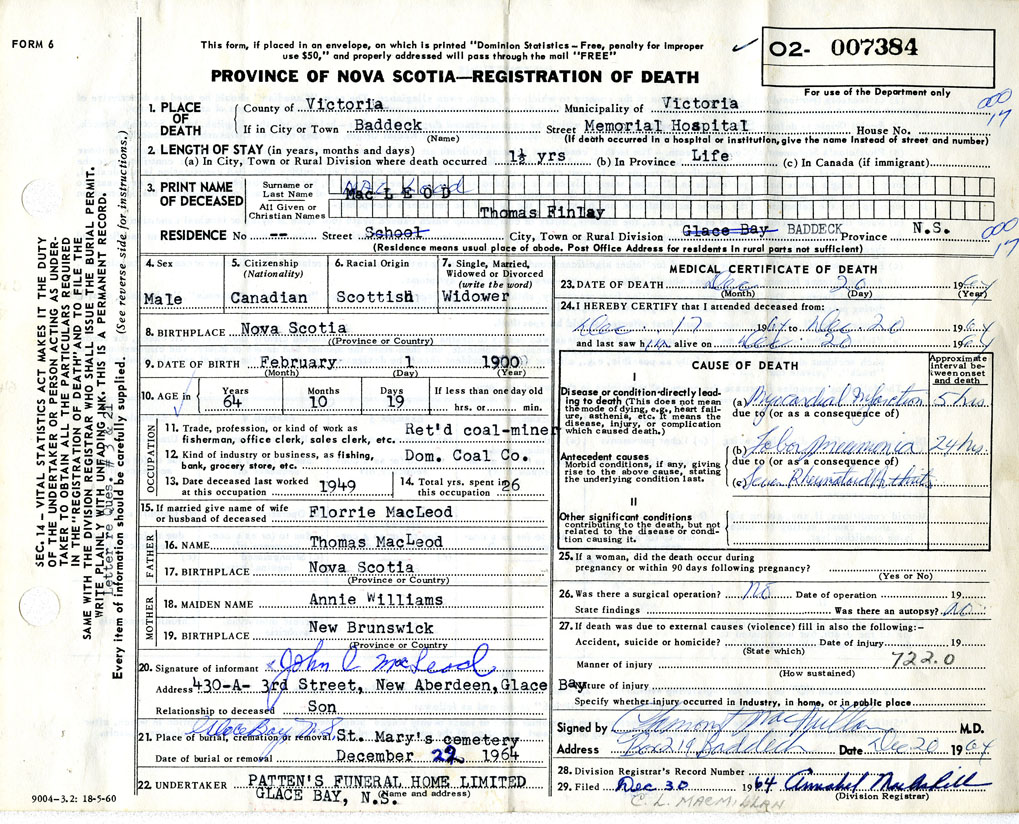 FORM 6
This form, if placed in an envelope, on which is printed "Dominion Statistics – Free, penalty for improper
use $50," and properly addressed will pass through the mail "FREE"
PROVINCE OF NOVA SCOTIA—REGISTRATION OF DEATH
O2- 007384
For use of the Department only
SEC. 14 – VITAL STATISTICS ACT MAKES IT THE DUTY
OF THE UNDERTAKER OR PERSON ACTING AS UNDER-
TAKER TO OBTAIN ALL THE PARTICULARS REQUIRED
IN THE "REGISTRATION OF DEATH" AND TO FILE THE
SAME WITH THE DIVISION REGISTRAR WHO SHALL ISSUE THE BURIAL PERMIT.
WRITE PLAINLY WITH UNFADING INK. THIS IS A PERMANENT RECORD.
Letter re Ques. #
Every item of information should be carefully supplied. (See reverse side for instructions.)
1. PLACE OF DEATH
County of Victoria Municipality of Victoria
000
17
If in City or Town Baddeck Street Memorial Hospital House No.
(Name) (If death occurred in a hospital or institution, give the name instead of street and number)
2. LENGTH OF STAY (in years, months and days)
(a) In City, Town or Rural Division where death occurred 1½ yrs (b) In Province Life (c) In Canada (if immigrant)
3. PRINT NAME OF DECEASED
Surname or Last Name Mac L E O D
All Given or Christian Names Thomas Finlay
RESIDENCE No -- Street School City, Town or Rural Division Glace Bay BADDECK Province N.S.
000
17
(Residence means usual place of abode. Post Office Address for residents in rural parts not sufficient)
4. Sex
Male
5. Citizenship
(Nationality)
Canadian
6. Racial Origin
Scottish
7. Single, Married, Widowed or Divorced
(write the word)
Widower
8. BIRTHPLACE Nova Scotia
((Province or Country)
9. DATE OF BIRTH February 1 1900
(Month) (Day) (Year)
10. AGE in
Years Months Days If less than one day old
64 10 19 hrs. or min.
OCCUPATION
11. Trade, profession, or kind of work as Ret'd coal-miner
fisherman, office clerk, sales clerk, etc.
12. Kind of industry or business, as fishing, Dom. Coal Co.
bank, grocery store, etc.
13. Date deceased last worked at this occupation 1949
14. Total yrs. spent in this occupation 26
15. If married give name of wife or husband of deceased Florrie MacLeod
FATHER
16. NAME Thomas MacLeod
17. BIRTHPLACE Nova Scotia
(Province or Country)
MOTHER
18. MAIDEN NAME Annie Williams
19. BIRTHPLACE New Brunswick
(Province or Country)
20. Signature of informant John C MacLeod
Address 430-A- 3rd Street, New Aberdeen, Glace Bay
Relationship to deceased Son
Glace Bay N S
21. Place of burial, cremation or removal St. Mary's cemetery
Date of burial or removal December 22 1964
22. UNDERTAKER PATTEN'S FUNERAL HOME LIMITED
GLACE BAY, N.S.
(Name and address)
9004–3.2: 18-5-60
MEDICAL CERTIFICATE OF DEATH
23. DATE OF DEATH Dec 20 1964
(Month) (Day) (Year)
24. I HEREBY CERTIFY that I attended deceased from:
Dec 17 1964 to Dec 20 1964
and last saw him alive on Dec 20 1964
CAUSE OF DEATH
Approximate interval between onset and death
I
Disease or condition directly leading to death (This does not mean the mode of dying, e.g., heart failure, asthenia, etc. It means the disease, injury, or complication which caused death.)
(a) Myocardial Infarction 5 hrs
due to (or as a consequence of)
Antecedent causes
Morbid conditions, if any, giving rise to the above cause, stating the underlying condition last.
(b) Lobar pneumonia 24 hrs.
due to (or as a consequence of)
(c) Severe Rheumatoid Arthritis
II
Other significant conditions
contributing to the death, but not related to the disease or condition causing it.
25. If a woman, did the death occur during
pregnancy or within 90 days following pregnancy?
(Yes or No)
26. Was there a surgical operation? No Date of operation 19
State findings Was there an autopsy? No
27. If death was due to external causes (violence) fill in also the following:–
Accident, suicide or homicide? Date of injury 19
(State which) 722.0
Manner of injury
(How sustained)
Nature of injury
Specify whether injury occurred in industry, in home, or in public place
Signed by C Lamont MacMillan M.D.
Address Box 219 Baddeck Date Dec 20 1964
28. Division Registrar's Record Number
29. Filed Dec 30 1964 Annabel
(Division Registrar)
C. L. MACMILLAN